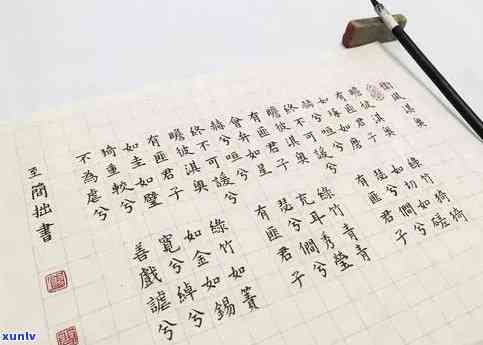 衛風淇奧
瞻彼淇奧綠竹猗猗
有匪君子如切如磋
如琢如磨瑟兮僴兮
赫兮咺兮有匪君子
終不可諼兮
瞻彼淇奧綠竹青青
有匪君子充耳琇瑩
會弁如星瑟兮僴兮
赫兮咺兮有匪君子
終不可諼兮
瞻彼淇奧綠竹如簀
有匪君子如金如錫
如圭如璧寬兮綽兮
猗重較兮善戲謔兮
不為虐兮
至簡拙書
xunlv